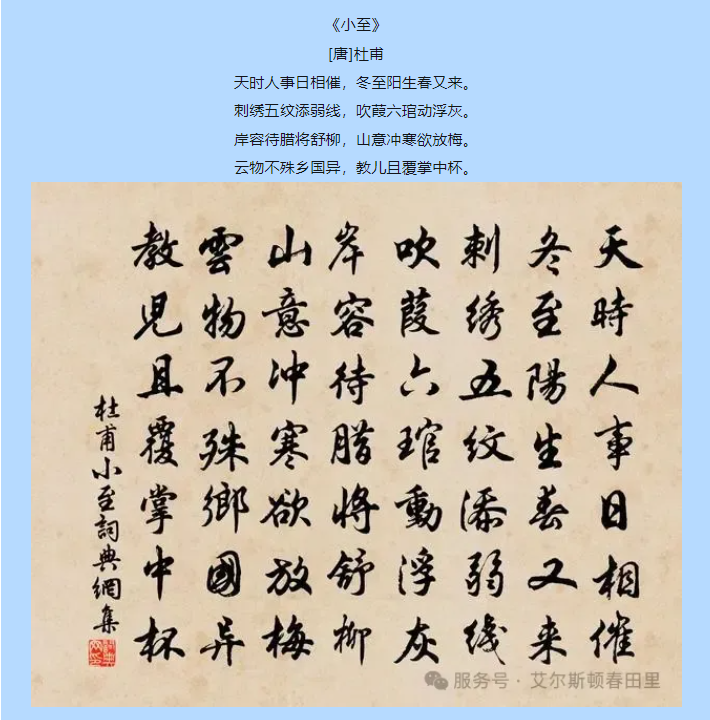 《小至》
[唐]杜甫
天时人事日相催，冬至阳生春又来。
刺绣五纹添弱线，吹葭六琯动浮灰。
岸容待腊将舒柳，山意冲寒欲放梅。
云物不殊乡国异，教儿且覆掌中杯。
天時人事日相催
冬至陽生春又来
刺绣五纹添弱线
吹葭六琯動浮灰
岸容待腊将舒柳
山意冲寒欲放梅
雲物不殊鄉國异
教児且覆掌中杯
杜甫小至詞典網集
服务号 · 艾尔斯顿春田里